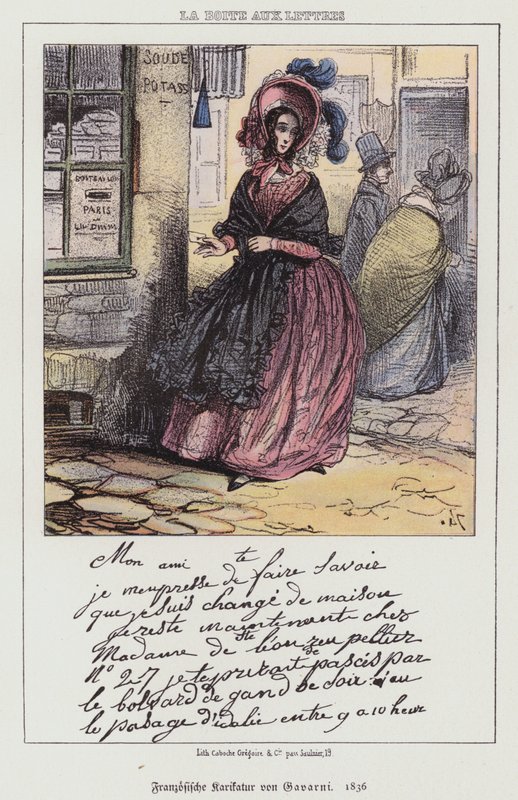 LA BOITE AUX LETTRES
SOUDE
POTASS
PARIS
Mon ami
je m'enpresse de te faire savoir
que je suis changé de maison
je reste maintenante chez
Madame de
No 27 je te prirait de pascés par
le bolvard de gand ce soir
le pasage d'idalie entre 9 a 10 heur
Lith Caboche Grégoire & Cie pass Saulnier, 19.
Französische Karikatur von Gavarni. 1836